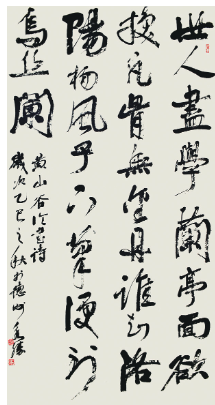 世人盡學蘭亭面欲
換凡骨無金丹誰知洛
陽楊風子下筆便到
烏絲闌
黃山谷论書詩
歲次乙巳之秋於